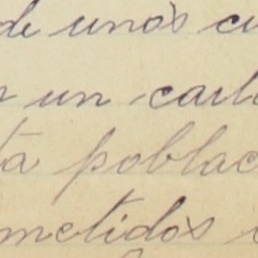 de unos cu
un carl
ta poblac
metidos